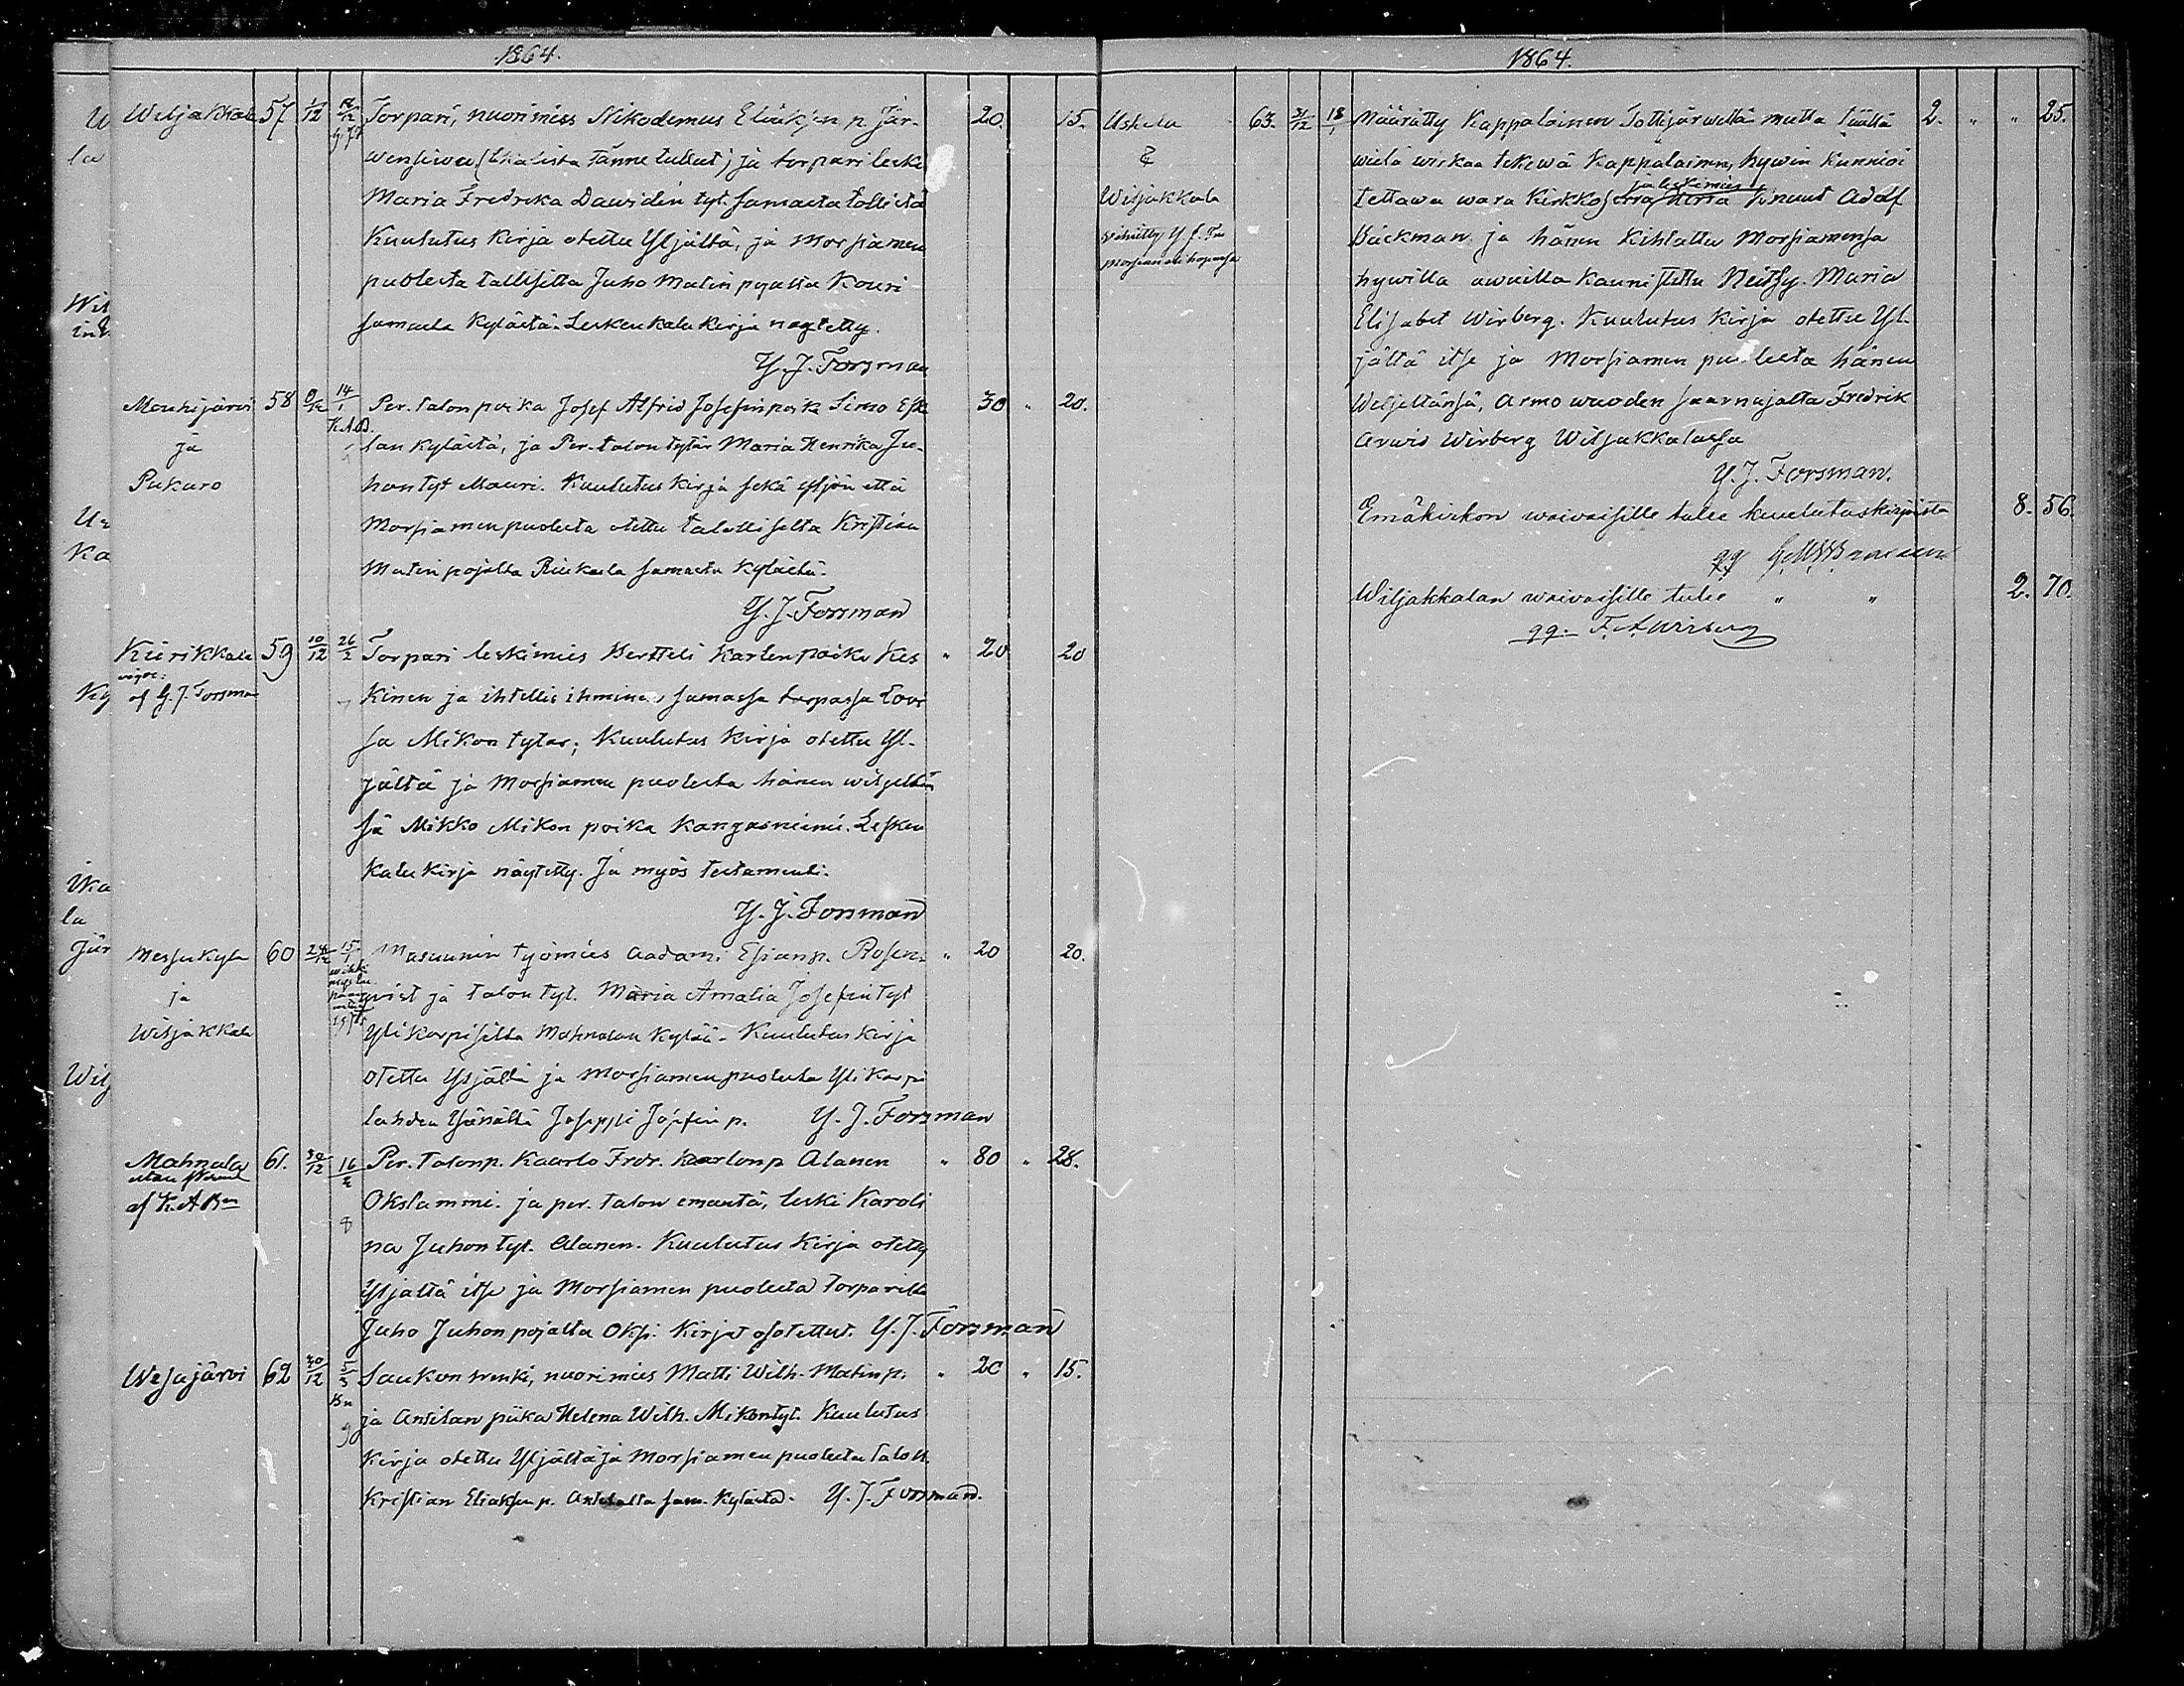 1864.
Wiljakkala 57 1/12 Torpari, nuorimies Nikodemus Eliakjen p. Jär- 20. 15.
wensiwu (tänne tullut) ja torpari leski
Maria Fredrika Dawidin tyt. samasta
Kuulutus kirja otettu Yljältä, ja Morsiamen
puolesta tallisilta Juho Matin pojalta Kouri
samasta Kylästä. Lesken kalukirja näytetty.
Y. J. Forsman
Mouhijärvi 58 8/12 14/1 Per. talon poika Josef Alfrid Josefin poika Simo Esk 30 " 20.
ja K.A.B. lan kylästä, ja Per. talon tytär Maria Henrika Ju-
Pukaro hon tyt Mauri. Kuulutus kirja sekä yljän että
Morsiamen puolesta otettu talollisilta Kristian
Matin pojalta samasta Kylästä.
Y. J. Forsman
Kiirikkala 59 10/12 26/2 Torpari leskimies Bertteli Karlen poika Kes " 20 20
wigde:
af G. J. Forsman kinen ja ihtellis ihminen samassa torpassa Lovi
sa Mikon tytar; Kuulutus kirja otettu Yl-
jältä ja Morsiamen puolesta hänen weljeltän
sä Mikko Mikon poika Kangasniemi. Lesken
Kalukirja näytetty. Ja myös testamenti.
Y. J. Forsman
Messukyla 60 24/12 15/1 Masuunin työmies Aadam Esian p. Rosen- " 20 20.
ja qvist ja talon tyt. Maria Amalia Josefin tyt
Wiljakkala Ylikorpisilta Mahnalan Kylää. Kuulutus kirja
otettu Yljältä ja Morsiamen puolesta Ylikorpi
lahden Isänältä Joseppi Josefin p. Y. J. Forsman
Mahnala 61. 30/12 16/2 Per. Talonp. Kaarlo Frdr. Kaarlonp Alanen " 80 " 28.
af K. A Bn Okslammi. ja per. talon emäntä, leski Karoli
na Juhon tyt. Alanen. Kuulutus Kirja otettu
Yljältä itse ja Morsiamen puolesta torparilta
Juho Juhon pojalta Oksi. Kirjat osotettut. Y. J. Forsman
Wesajärvi 62 30/12 5/3 Saukon renki, nuorimies Matti Wilh. Matinp. " 20 " 15.
Bn ja Antilan piika Helena Wilh. Mikontyt. Kuulutus
9 Kirja otettu Yljältä ja Morsiamen puolesta taloll.
Kristian Eliaksen p. Antilalta sam. Kylästä. Y. J. Forsman.
1864.
Uskela 63. 31/12 18/1 Määrätty Kappalainen Tottijärwellä mutta täällä 2. " " 25.
& wielä wirkaa tekewä Kappalainen, hywin kunnioi
ja leskimies
Wiljakkala tettawa wara Kirkkoherra herra Knuut Adolf
wihitty Y. J. Fn Bäckman ja hänen Kihlattu Morsiamensa
hywillä awuilla Kaunistettu Neitsy Maria
Elisabet Wirberg. Kuulutus kirja otettu Yl-
jältä itse ja Morsiamen puolesta hänen
Weljeltänsä, Armo wuoden saarnajalta Fredrik
Arwid Wirberg Wiljakkalassa
Y. J. Forsman.
Emäkirkon waiwaisille tulee kuulutuskirjoista 8. 56.
qq
Wiljakkalan waiwaisille tulee " " 2. 70.
qq. F. A Wirberg